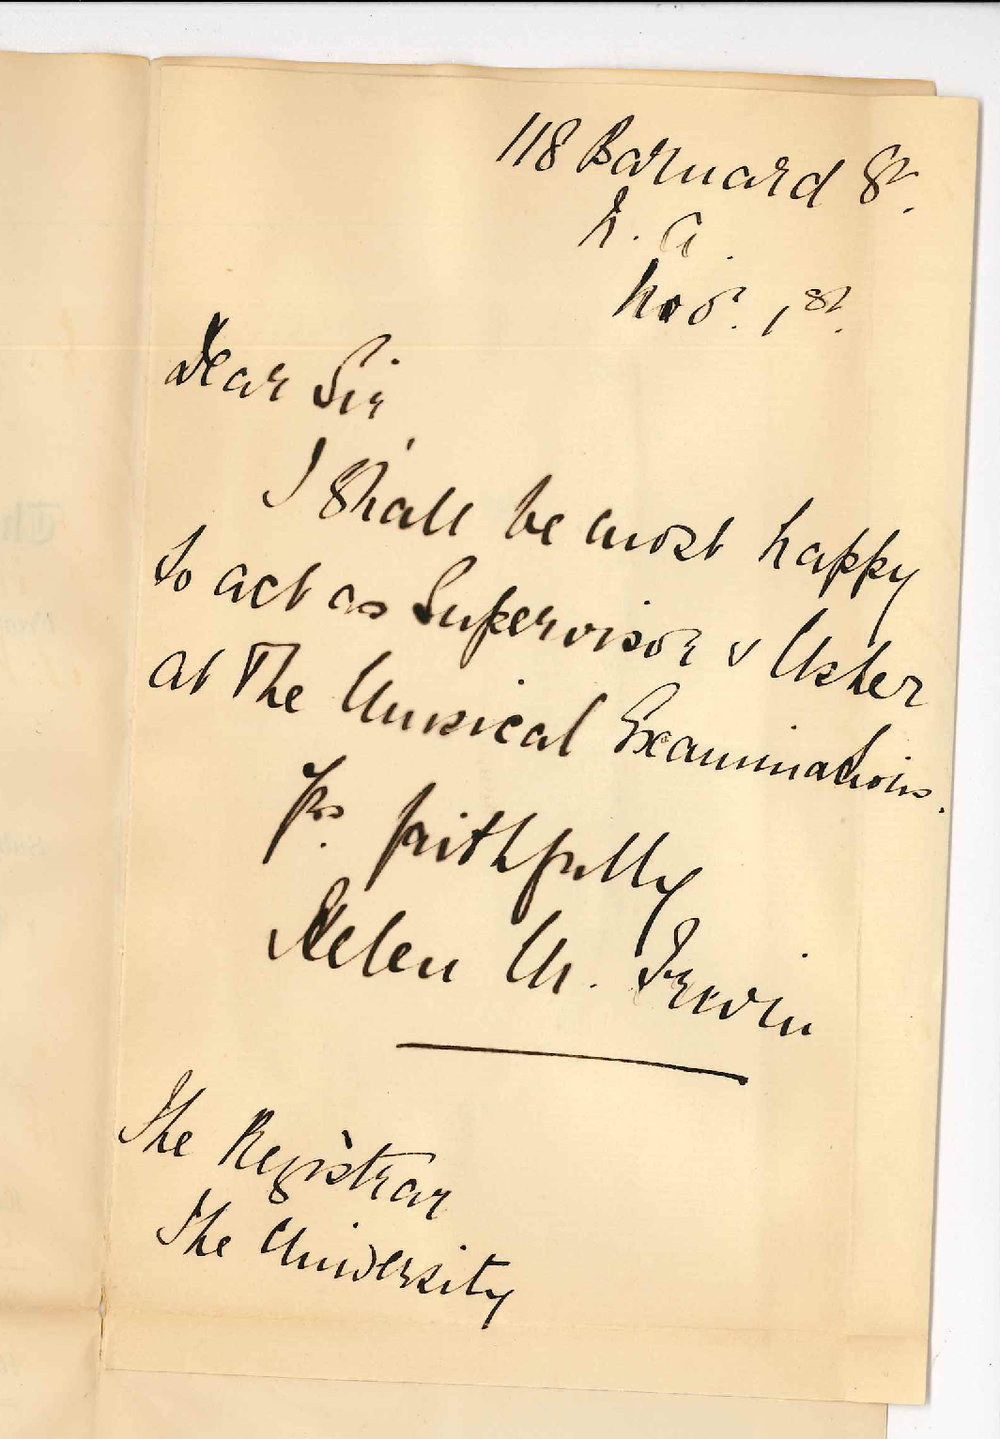 118 Barnard St.
N. A.
Nov. 1st.
Dear Sir,
I shall be most happy
to act as Supervisor & Usher
at the Musical Examinations.
Yrs. faithfully
Helen M. Irwin
The Registrar
The University